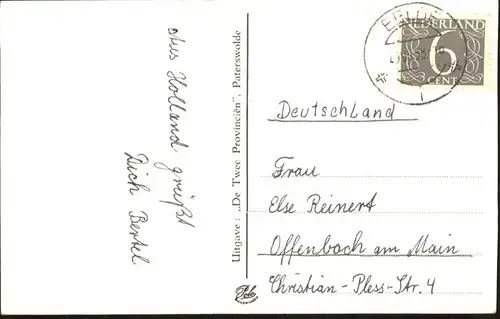 Aus Holland grüßt
Dich Bertel.
Uitgave: „De Twee Provinciën", Paterswolde
NEDERLAND
6
CENT
Deutschland
Frau
Else Reinert
Offenbach am Main
Christian-Pless-Str. 4